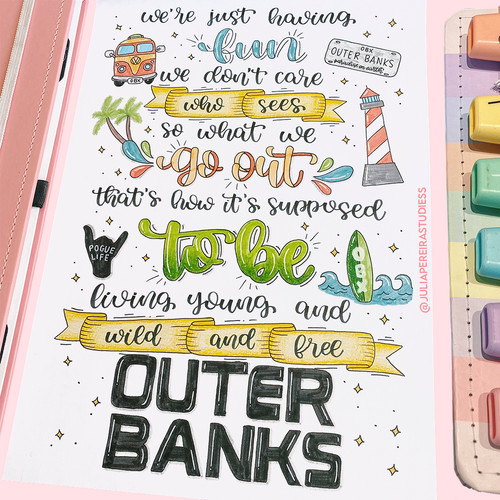 we're just having
fun
OBX
OUTER BANKS
paradise on earth
OBX
we don't care
who sees
so what we
go out
that's how it's supposed
to be
POGUE
LIFE
OBX
living young and
wild and free
OUTER
BANKS
@JULIAPEREIRASTUDIESS